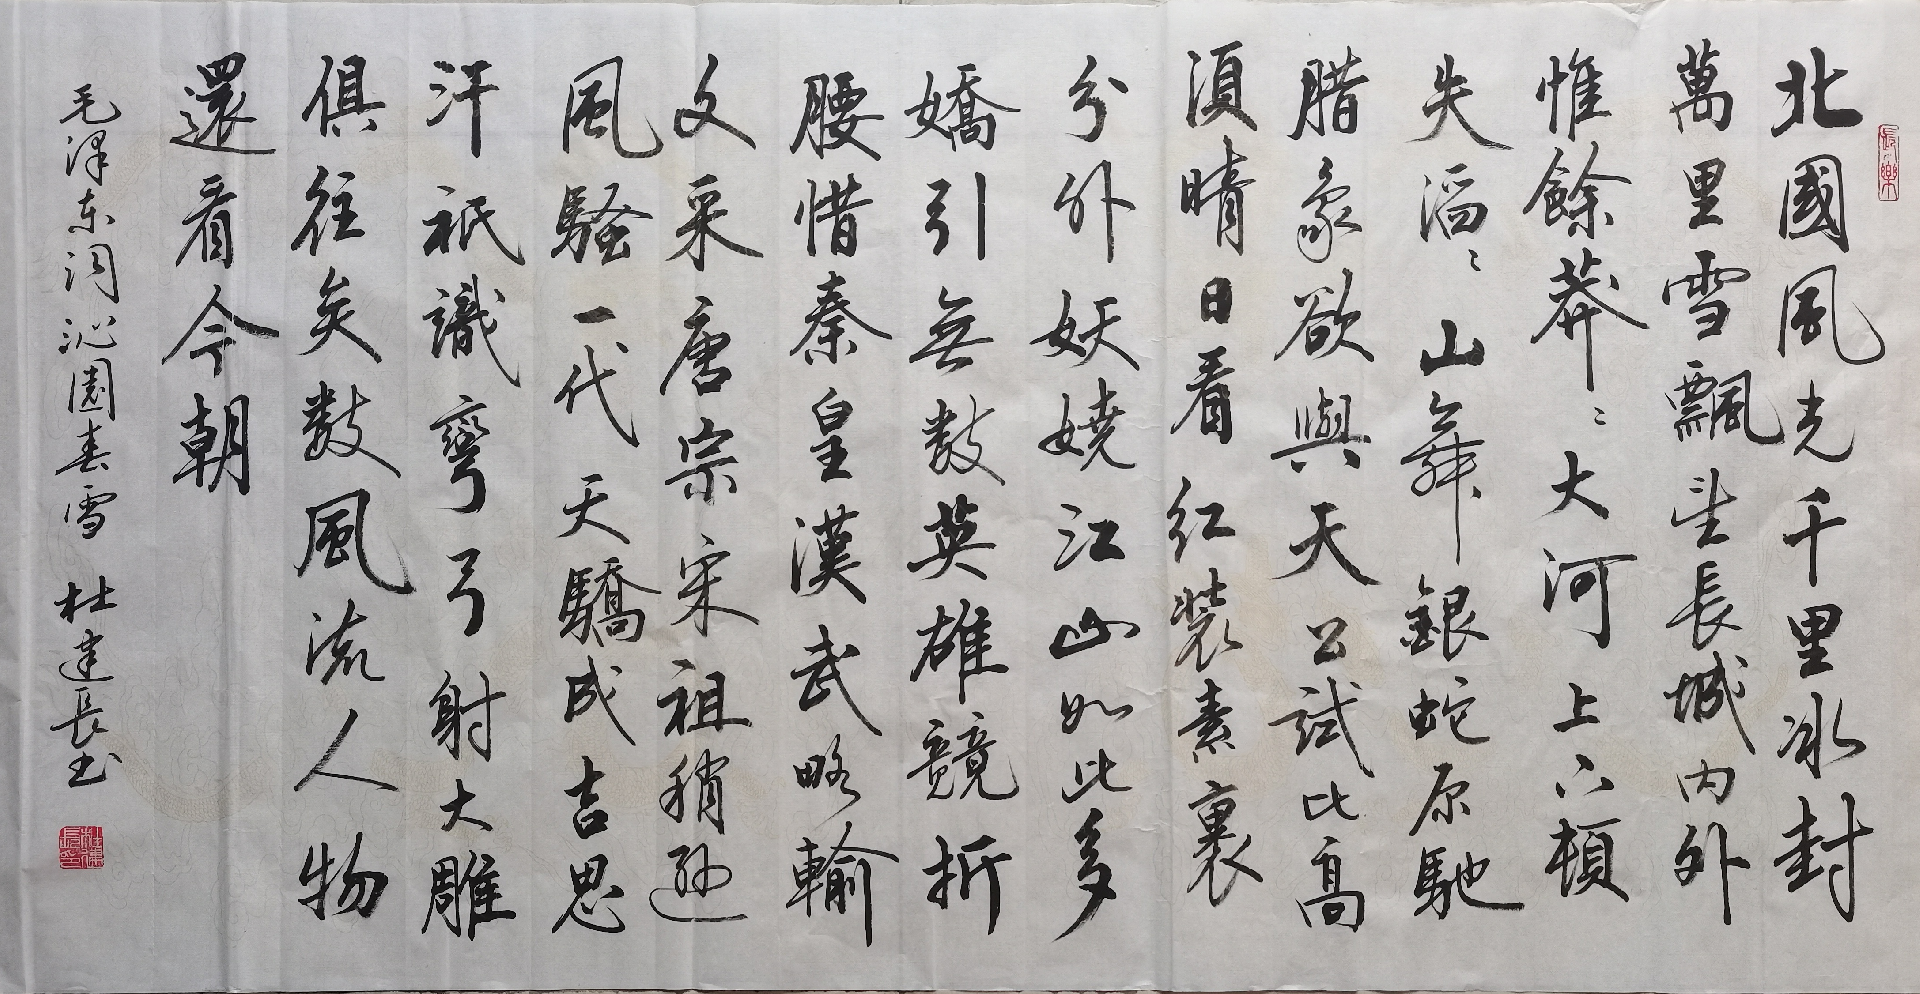 長樂
北國風光千里冰封
萬里雪飄望長城内外
惟餘莽〻大河上下頓
失滔〻山舞銀蛇原馳
腊象欲與天公試比高
須晴日看红裝素裹
分外妖嬈江山如此多
嬌引無數英雄競折
腰惜秦皇漢武略輸
文采唐宗宋祖稍遜
風騷一代天驕成吉思
汗祇識彎弓射大雕
俱往矣數風流人物
還看今朝
毛泽东词沁園春雪 杜建長书
杜建長印